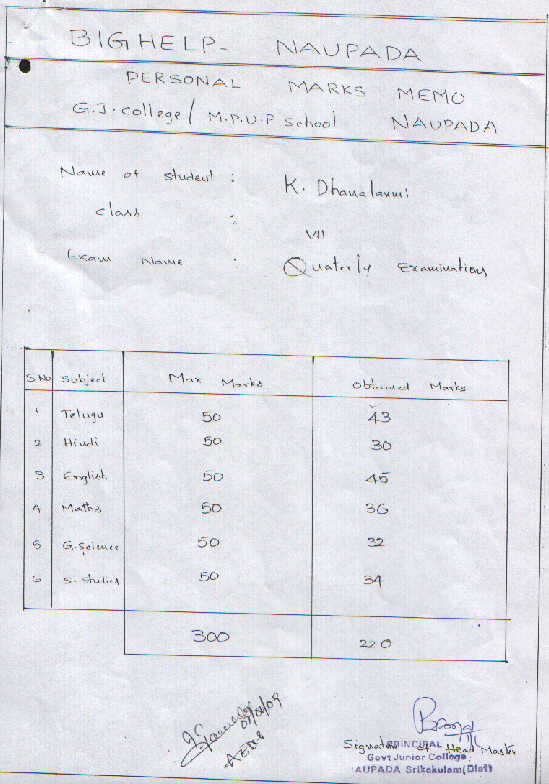 BIGHELP- NAUPADA
PERSONAL MARKS MEMO
G.J.College / M.P.U.P School NAUPADA
Name of student : K. Dhanalaxmi
Class : VII
Exam Name : Quaterly Examinations
S.No Subject Max Marks Obtained Marks
1 Telugu 50 43
2 Hindi 50 30
3 English 50 45
4 Maths 50 36
5 G.Science 50 32
6 S. Studies 50 34
300 220
Signature of Head Master
PRINCIPAL
Govt Junior College,
AUPADA Srikakulam(Dist)